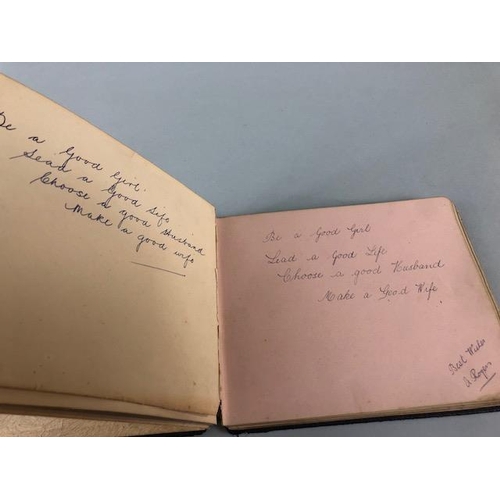 Be a Good Girl.
Lead a Good Life
Choose a good Husband
Make a good wife
Be a Good Girl
Lead a Good Life
Choose a good Husband
Make a Good Wife
Best Wishes
A Roper